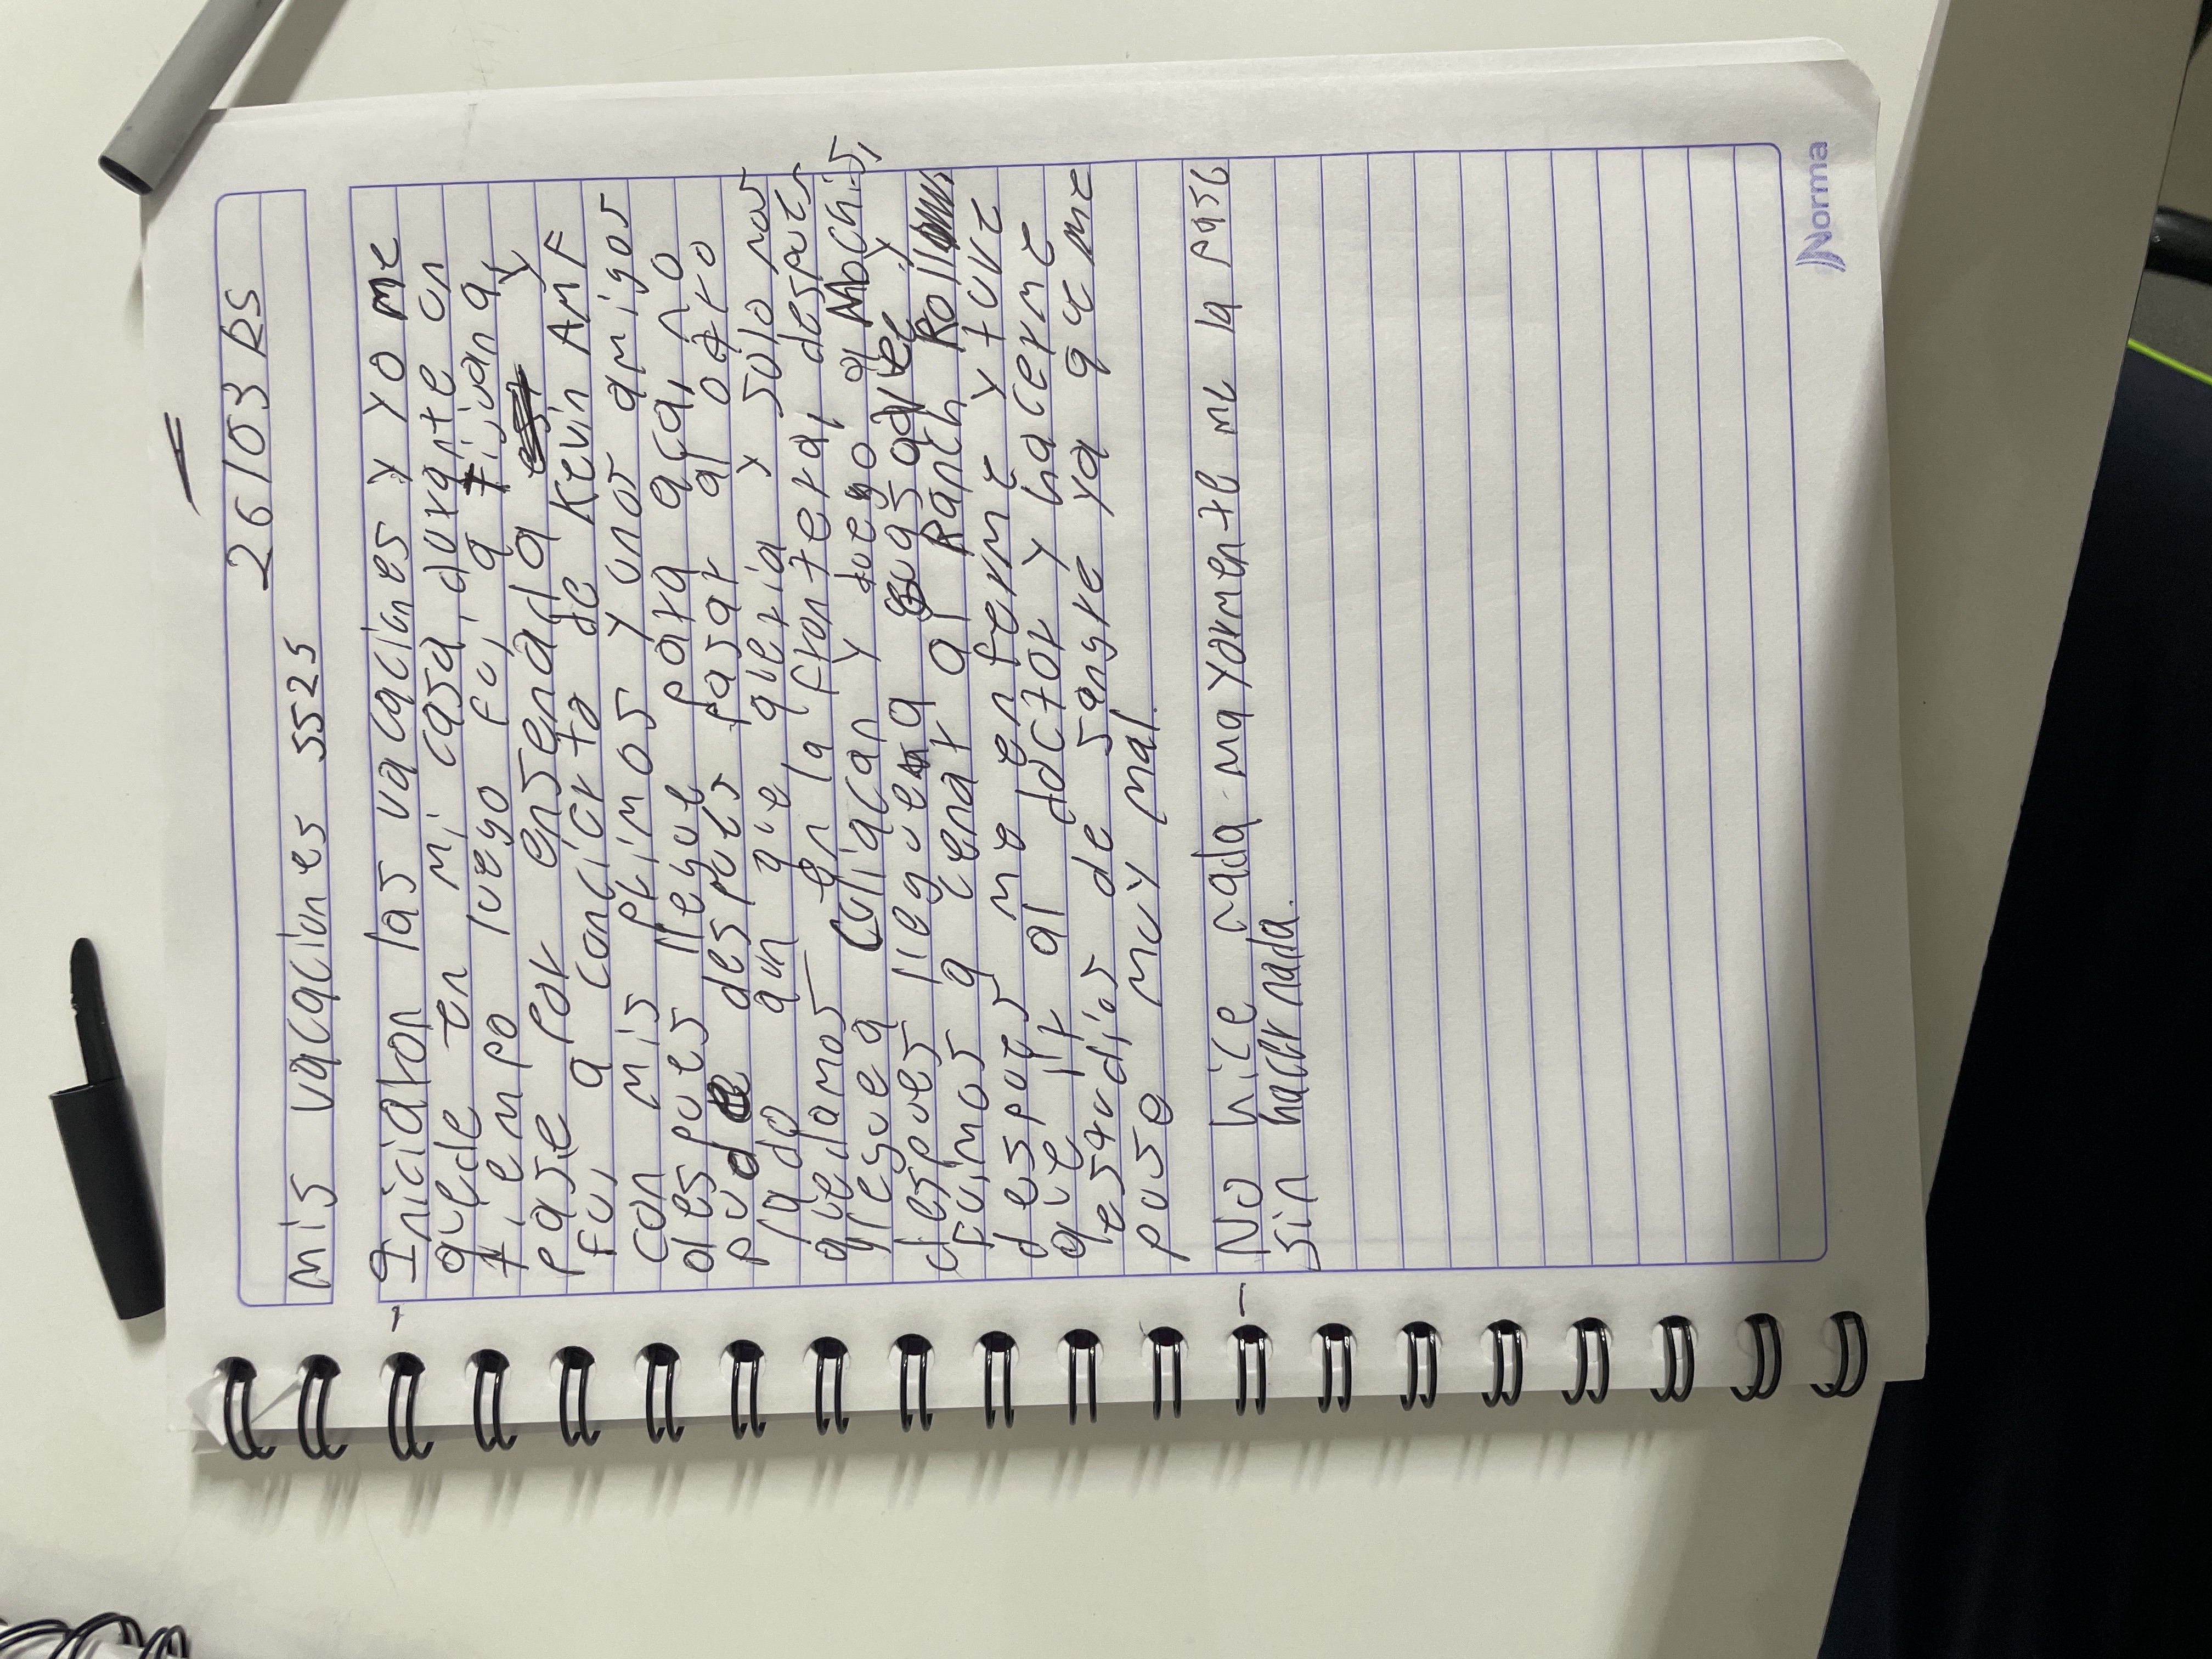 26/03 RS
mis vacaciones 5525
- Iniciaron las vacaciones y yo me
quede en mi casa, durante un
tiempo luego fui a tijuana,
pase por ensenada y
fui a concierto de Kevin AMF
con mis primos y unos amigos
despues llegue para aca, no
pude despues pasar al otro
lado aun que queria y solo nos
quedamos en la frontera, despues
llegue a Culiacan y luego a Mochis,
despues llegue a Guasave y
fuimos a cenar al Ranch Roll
despues me enferme y tuve
que ir al doctor y hacerme
estudios de sangre ya que me
puse muy mal.
- No hice nada mayormente me la pase
sin hacer nada.
Norma